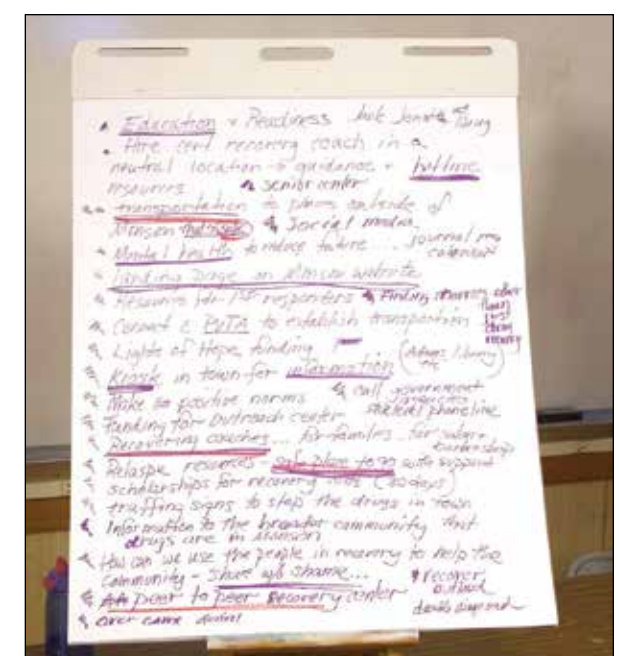 Education + Readiness
Hire cert recovery coach in a
neutral location → guidance + hotline
resources senior center
transportation to places outside of
Monson Social media
Mental health to reduce future ... journal
calendar
Landing page on Monson website
Resources for 1st responders Finding
Connect c PVTA to establish transportation
recovery
Lights of Hope, funding
Kiosk in town for information library
call government
Make to positive norms agencies
funding for Outreach center phone line
Recovering coaches... for families for
Relaspe resources - safe place to go with support
scholarships for recovery
signs to stop the drugs in town
Information to the broader community that
drugs are in Monson
How can we use the people in recovery to help the
community - share w/o shame... recover
AA peer to peer Recovery center out loud
over come denial